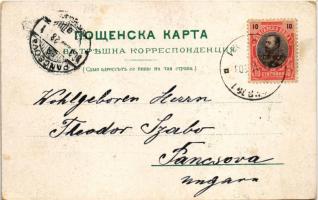 ПОЩЕНСКА КАРТА
ВѪТРѢШНА КОРРЕСПОНДЕНЦИЯ
(Само адресътъ се пише на тая страна.)
10 10
PANCSOVA
Wohlgeboren Herrn
Theodor Szabo
Pancsova
Ungarn